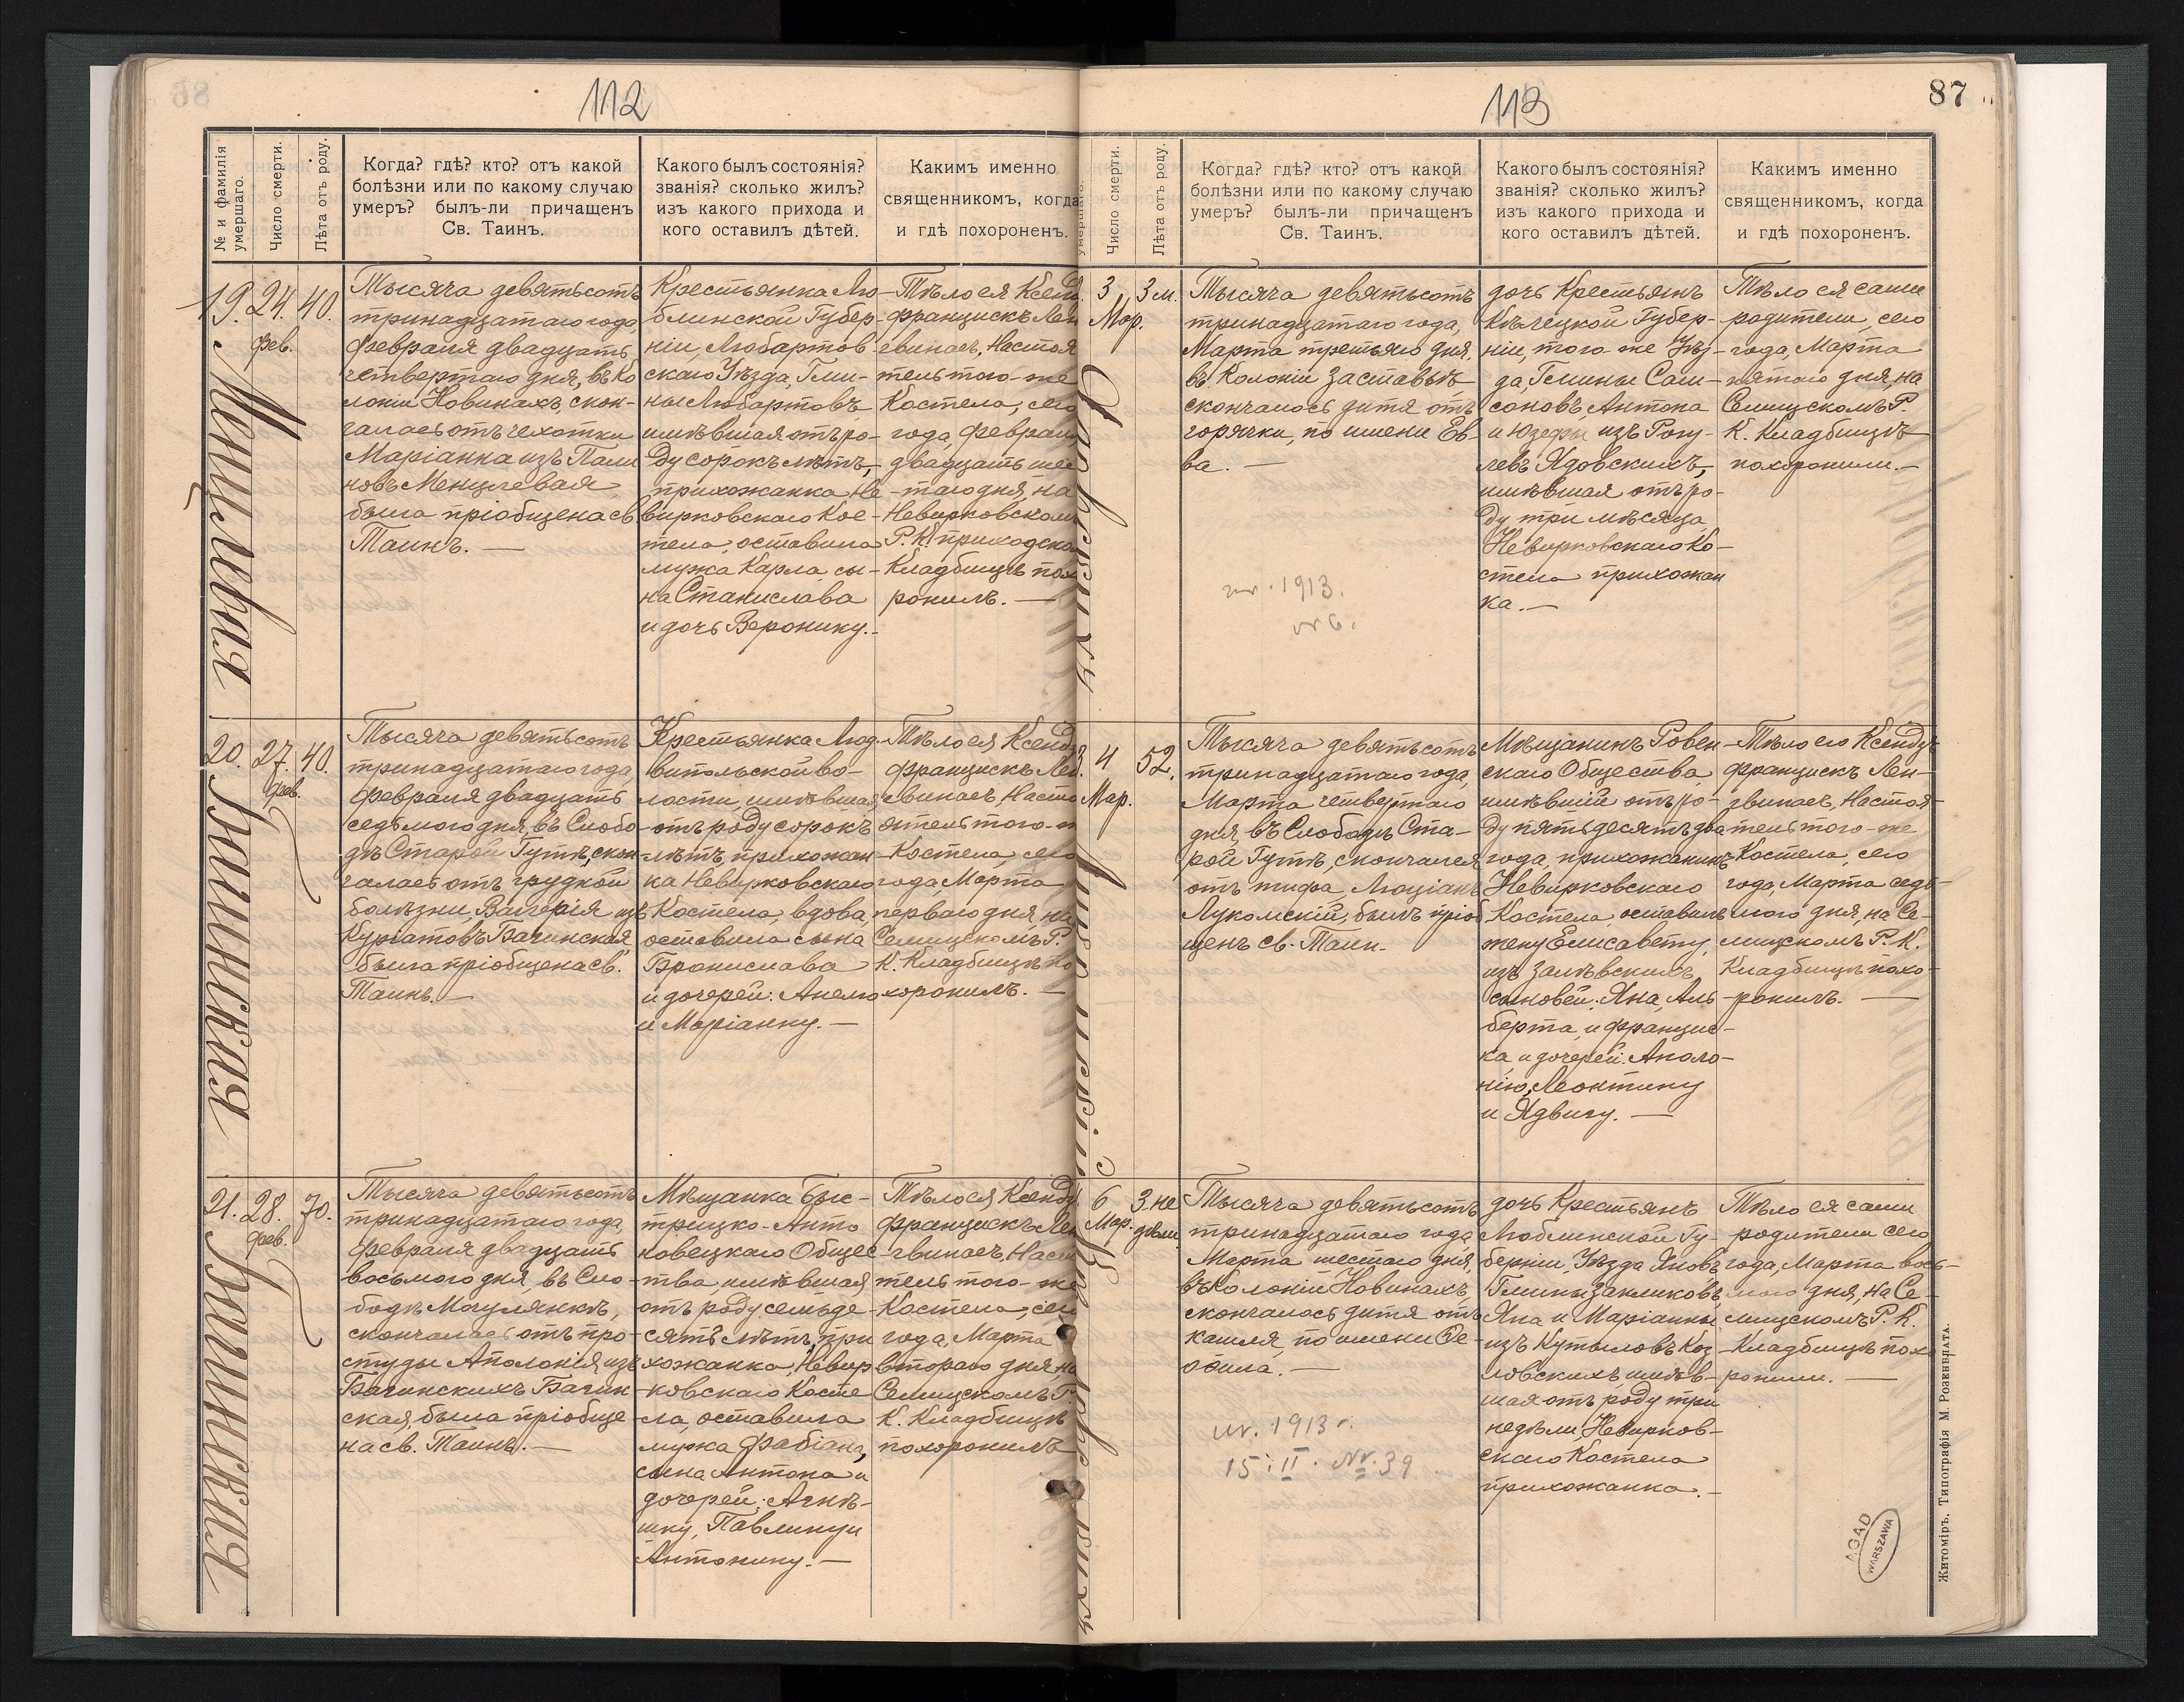 112
№ и фамилія умершаго.
Число смерти.
Лѣта отъ роду.
Когда? гдѣ? кто? отъ какой
болѣзни или по какому случаю
умеръ? былъ-ли причащенъ
Св. Таинъ.
Какого былъ состоянія?
званія? сколько жилъ?
изъ какого прихода и
кого оставилъ дѣтей.
Каким именно
священникомъ, когда
и гдѣ похороненъ.
19.
Менцлевая
24.
Фев.
40.
Тысяча девятьсотъ
тринадцатаго года
Февраля двадцать
четвертаго дня, въ Ко
лоніи Новинахъ, скон-
чалась отъ чехотки
Маріанна изъ Пали
новъ Менцлевая,
была пріобщена св
Таинъ. —
Крестьянка Лю-
блинской Губер-
ніи, Любартов
скаго Уѣзда, Гми-
ны Любартовъ
имѣвшая отъ ро-
ду сорокъ лѣтъ,
прихожанка Не
вирковскаго Кос-
тела, оставила
мужа Карла, сы-
на Станислава
и дочь Веронику.-
Тѣло ея Ксенд
Францискъ Лен
гвинасъ, Настоя
тель того-же
Костела, сего
года, Феврал
двадцать шес
-таго дня, на
Невирковском
Р. К. приходско
Кладбищѣ пох
ронилъ. —
20.
Бачинская
27.
Фев.
40.
Тысяча девятьсотъ
тринадцатаго года
Февраля двадцать
седьмого дня, въ Слобо
дѣ Старой Гутѣ, скон
чалась отъ грудной
болѣзни, Валерія изъ
Курчатовъ Бачинская,
была пріобщена св.
Таинъ. —
Крестьянка Люд
випольской во-
лости, имѣвшая
отъ роду сорокъ
лѣтъ, прихожан
ка Невирковскаго
Костела, вдова,
оставила сына
Бронислава
и дочерей: Анелю
и Маріанну. —
Тѣло ея Ксендз
Францискъ Лен
гвинасъ, Насто
ятель того-ж
Костела, сего
года Марта
перваго дня, на
Селищскомъ Р.
К. Кладбищѣ по
хоронилъ. —
21.
Бачинская
28.
Фев.
70.
Тысяча девятьсотъ
тринадцатаго года,
Февраля двадцать
восьмого дня, въ Сло
бодѣ Могулянкѣ,
скончалась отъ про
студы Аполонія изъ
Бачинскихъ Бачин
ская, была пріобще
на св. Таинъ. —
Мѣщанка Бис-
трицко-Анто
новецкаго Общес
тва, имѣвшая
отъ роду семьде
сятъ лѣтъ, при
хожанка, Невир
ковскаго Косте
ла, оставила
мужа Фабіана,
сына Антона и
дочерей: Агнѣ-
шку, Павлину и
Антонину. —
Тѣло ея Ксендз
Францискъ Лен
гвинасъ, Наст
тель того-же
Костела, сего
года, Марта
второго дня, на
Селищскомъ Р.
К. Кладбищѣ
похоронилъ
113
87
умершаго.
Число смерти.
Лѣта отъ роду.
Когда? гдѣ? кто? отъ какой
болѣзни или по какому случаю
умеръ? былъ-ли причащенъ
Св. Таинъ.
Какого былъ состоянія?
званія? сколько жилъ?
изъ какого прихода и
кого оставилъ дѣтей.
Каким именно
священникомъ, когда
и гдѣ похороненъ.
3
Мар.
3 м.
Тысяча девятьсотъ
тринадцатаго года,
Марта третьяго дня,
въ Колоніи Заставьѣ
скончалось дитя отъ
горячки, по имени Ев-
ва. —
ur. 1913.
№ 6.
дочь Крестьянъ
Кѣлецкой Губер-
ніи, того-же Уѣз-
да, Гмины Сам-
соновъ, Антона
и Юзефы изъ Рогу-
левъ Ядовскихъ,
имѣвшая отъ ро-
ду три мѣсяца
Невирковскаго Ко-
стела прихожан
ка. —
Тѣло ея сами
родители, сего
года, Марта
пятаго дня, на
Селищскомъ Р.
К. Кладбищѣ
похоронили. —
4
Мар.
52.
Тысяча девятьсотъ
тринадцатаго года,
Марта четвертаго
дня, въ Слободѣ Ста-
рой Гутѣ, скончался
отъ тифа Люціанъ
Лукомскій, былъ пріоб
щенъ св. Таин.
Мѣщанинъ Ровен
скаго Общества,
имѣвшій отъ ро-
ду пятьдесятъ два
года, прихожанинъ
Невирковскаго
Костела, оставилъ
жену Елисавету,
изъ Залѣвскихъ,
сыновей: Яна, Аль
берта, и Францис-
ка, и дочерей: Аполо-
нію, Леонтину
и Ядвигу. —
Тѣло его Ксендзъ
Францискъ Лен-
гвинасъ, Настоя-
тель того-же
Костела, сего
года, Марта седь-
мого дня, на Се-
лищскомъ Р. К.
Кладбищѣ похо-
ронилъ. —
6
Мар.
3 не
дѣли
Тысяча девятьсотъ
тринадцатаго года,
Марта шестаго дня,
въ Колоніи Новинахъ,
скончалось дитя отъ
кашля, по имени Фе-
офила. —
ur. 1913 r.
15: II. Nr. 39
дочь Крестьянъ
Люблинской Гу-
берніи, Уѣзда Яновъ
Гмины Закликовъ,
Яна и Маріанны
изъ Кутыловъ Коз
ловскихъ, имѣв-
шая отъ роду три
недѣли, Невирков-
скаго Костела
прихожанка. —
Тѣло ея сами
родители сего
года, Марта вось-
мого дня, на Се-
лищскомъ Р. К.
Кладбищѣ пох
ронили. —
AGAD
WARSZAWA
Житоміръ. Типографія М. Розенблата.